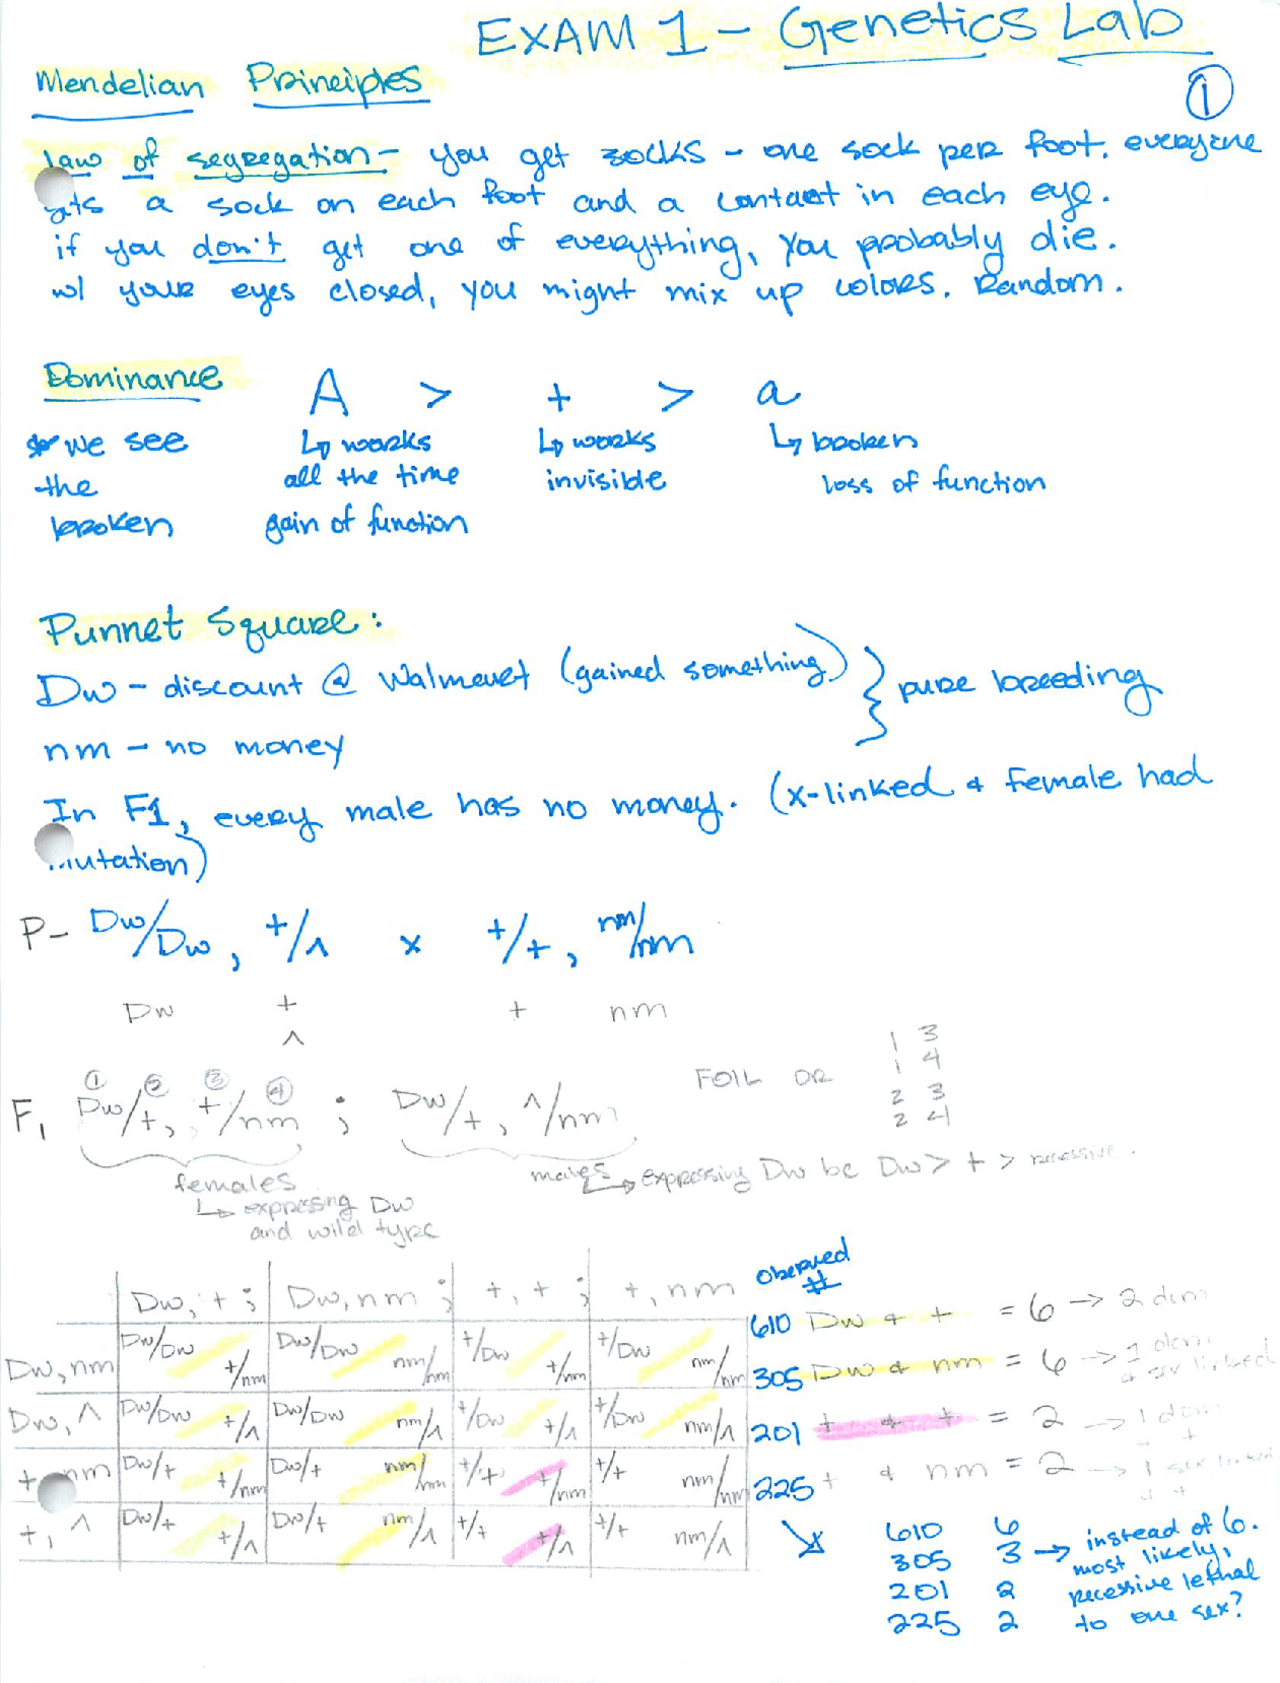 EXAM 1 - Genetics Lab
Mendelian Principles
1
law of segregation - you get socks - one sock per foot. everyone
gets a sock on each foot and a contact in each eye.
if you don't get one of everything, you probably die.
w/ your eyes closed, you might mix up colors. Random.
Dominance A > + > a
* we see ↳ works ↳ works ↳ broken
the all the time invisible loss of function
broken gain of function
Punnet Square:
Dw - discount @ Walmart (gained something) } pure breeding
nm - no money
In F1, every male has no money. (x-linked & female had
mutation)
P- Dw/Dw, +/^ x +/+, nm/nm
Dw + + nm
^
FOIL OR 1 3
1 4
2 3
2 4
① ② ③ ④
F1 Dw/+, +/nm ; Dw/+, ^/nm
females males ↳ expressing Dw bc Dw > + > recessive.
↳ expressing Dw
and wild type
Observed
#
Dw, + ; Dw, nm ; +, + ; +, nm
610 Dw & + = 6 → 2 dom
Dw, nm Dw/Dw +/nm Dw/Dw nm/nm +/Dw +/nm +/Dw nm/nm
305 Dw & nm = 6 → 1 dom
& sex linked
Dw, ^ Dw/Dw +/^ Dw/Dw nm/^ +/Dw +/^ +/Dw nm/^
201 + & + = 2 → 1 dom
+, nm Dw/+ +/nm Dw/+ nm/nm +/+ +/nm +/+ nm/nm
225 + & nm = 2 → 1 sex linked
+, ^ Dw/+ +/^ Dw/+ nm/^ +/+ +/^ +/+ nm/^
610 6
305 3 → instead of 6.
201 2 most likely,
225 2 recessive lethal
to one sex?